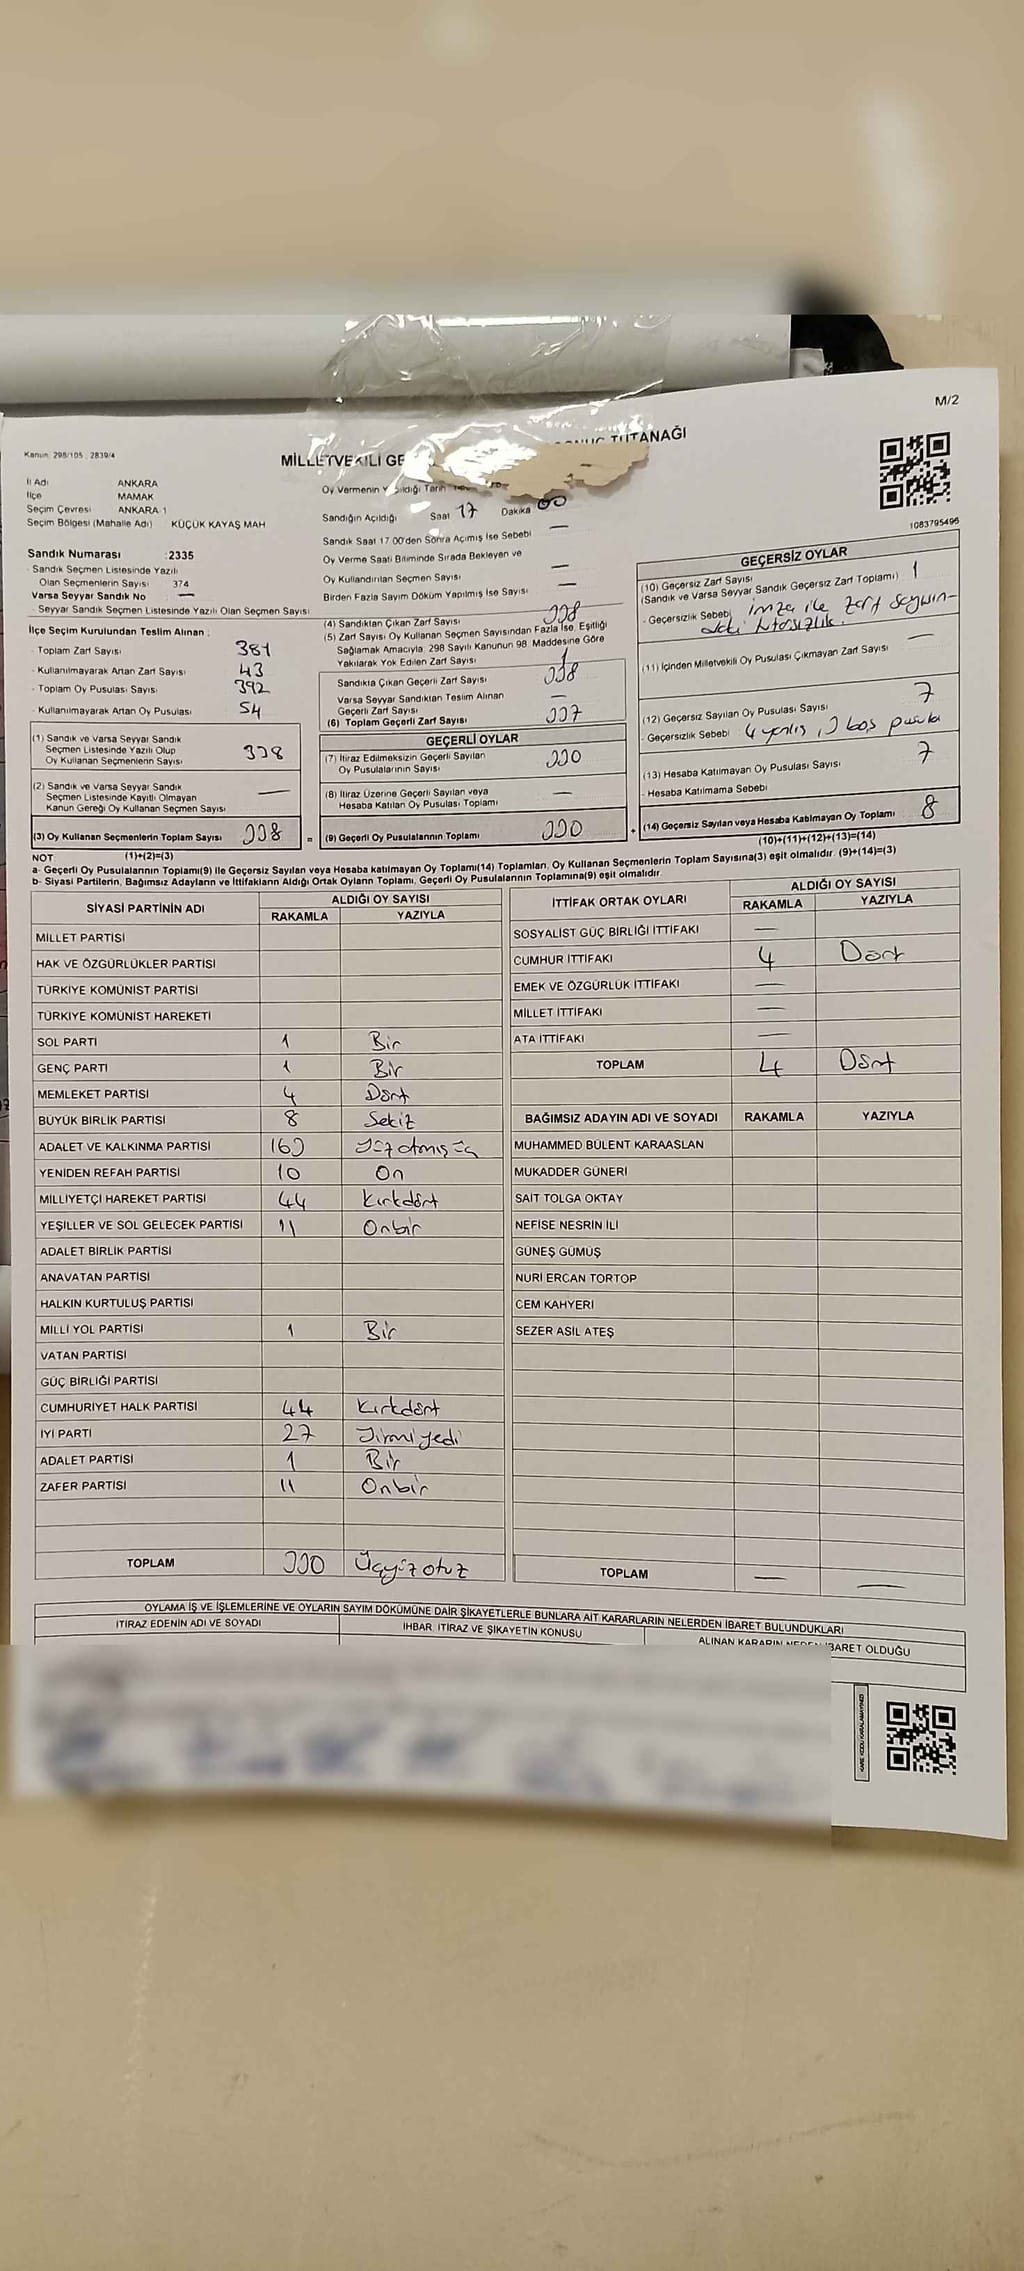 M/2
Kanun: 298/105 , 2839/4
MİLLETVEKİLİ GE
TUTANAĞI
İl Adı ANKARA
İlçe MAMAK
Seçim Çevresi ANKARA 1
Seçim Bölgesi (Mahalle Adı) KÜÇÜK KAYAŞ MAH
Sandık Numarası :2335
- Sandık Seçmen Listesinde Yazılı
Olan Seçmenlerin Sayısı 374
Varsa Seyyar Sandık No —
- Seyyar Sandık Seçmen Listesinde Yazılı Olan Seçmen Sayısı:
İlçe Seçim Kurulundan Teslim Alınan :
- Toplam Zarf Sayısı 381
- Kullanılmayarak Artan Zarf Sayısı 43
- Toplam Oy Pusulası Sayısı 392
- Kullanılmayarak Artan Oy Pusulası 54
(1) Sandık ve Varsa Seyyar Sandık
Seçmen Listesinde Yazılı Olup
Oy Kullanan Seçmenlerin Sayısı 338
(2) Sandık ve Varsa Seyyar Sandık
Seçmen Listesinde Kayıtlı Olmayan
Kanun Gereği Oy Kullanan Seçmen Sayısı —
(3) Oy Kullanan Seçmenlerin Toplam Sayısı 338 =
Oy Vermenin Yapıldığı Tarih
Sandığın Açıldığı Saat 17 Dakika 00
Sandık Saat 17.00'den Sonra Açılmış İse Sebebi —
Oy Verme Saati Bitiminde Sırada Bekleyen ve
Oy Kullandırılan Seçmen Sayısı —
Birden Fazla Sayım Döküm Yapılmış İse Sayısı —
(4) Sandıktan Çıkan Zarf Sayısı 338
(5) Zarf Sayısı Oy Kullanan Seçmen Sayısından Fazla İse, Eşitliği
Sağlamak Amacıyla, 298 Sayılı Kanunun 98. Maddesine Göre
Yakılarak Yok Edilen Zarf Sayısı 1
Sandıkta Çıkan Geçerli Zarf Sayısı 338
Varsa Seyyar Sandıktan Teslim Alınan
Geçerli Zarf Sayısı —
(6) Toplam Geçerli Zarf Sayısı 337
GEÇERLİ OYLAR
(7) İtiraz Edilmeksizin Geçerli Sayılan
Oy Pusulalarının Sayısı 330
(8) İtiraz Üzerine Geçerli Sayılan veya
Hesaba Katılan Oy Pusulası Toplamı —
(9) Geçerli Oy Pusulalarının Toplamı 330 +
1083795496
GEÇERSİZ OYLAR
(10) Geçersiz Zarf Sayısı 1
(Sandık ve Varsa Seyyar Sandık Geçersiz Zarf Toplamı)
- Geçersizlik Sebebi imza ile zarf sayısın-
daki
(11) İçinden Milletvekili Oy Pusulası Çıkmayan Zarf Sayısı —
(12) Geçersiz Sayılan Oy Pusulası Sayısı 7
- Geçersizlik Sebebi 4 yanlış, 3 boş pusula
(13) Hesaba Katılmayan Oy Pusulası Sayısı 7
- Hesaba Katılmama Sebebi
(14) Geçersiz Sayılan veya Hesaba Katılmayan Oy Toplamı 8
NOT (1)+(2)=(3)
(10)+(11)+(12)+(13)=(14)
a- Geçerli Oy Pusulalarının Toplamı(9) ile Geçersiz Sayılan veya Hesaba katılmayan Oy Toplamı(14) Toplamları, Oy Kullanan Seçmenlerin Toplam Sayısına(3) eşit olmalıdır. (9)+(14)=(3)
b- Siyasi Partilerin, Bağımsız Adayların ve İttifakların Aldığı Ortak Oyların Toplamı, Geçerli Oy Pusulalarının Toplamına(9) eşit olmalıdır.
SİYASİ PARTİNİN ADI ALDIĞI OY SAYISI
RAKAMLA YAZIYLA
MİLLET PARTİSİ
HAK VE ÖZGÜRLÜKLER PARTİSİ
TÜRKİYE KOMÜNİST PARTİSİ
TÜRKİYE KOMÜNİST HAREKETİ
SOL PARTİ 1 Bir
GENÇ PARTİ 1 Bir
MEMLEKET PARTİSİ 4 Dört
BÜYÜK BİRLİK PARTİSİ 8 Sekiz
ADALET VE KALKINMA PARTİSİ 163 Yüz atmış üç
YENİDEN REFAH PARTİSİ 10 On
MİLLİYETÇİ HAREKET PARTİSİ 44 Kırkdört
YEŞİLLER VE SOL GELECEK PARTİSİ 11 Onbir
ADALET BİRLİK PARTİSİ
ANAVATAN PARTİSİ
HALKIN KURTULUŞ PARTİSİ
MİLLİ YOL PARTİSİ 1 Bir
VATAN PARTİSİ
GÜÇ BİRLİĞİ PARTİSİ
CUMHURİYET HALK PARTİSİ 44 Kırkdört
İYİ PARTİ 27 Yirmi yedi
ADALET PARTİSİ 1 Bir
ZAFER PARTİSİ 11 Onbir
TOPLAM 330 Üçyüz otuz
İTTİFAK ORTAK OYLARI ALDIĞI OY SAYISI
RAKAMLA YAZIYLA
SOSYALİST GÜÇ BİRLİĞİ İTTİFAKI —
CUMHUR İTTİFAKI 4 Dört
EMEK VE ÖZGÜRLÜK İTTİFAKI —
MİLLET İTTİFAKI —
ATA İTTİFAKI —
TOPLAM 4 Dört
BAĞIMSIZ ADAYIN ADI VE SOYADI RAKAMLA YAZIYLA
MUHAMMED BÜLENT KARAASLAN
MUKADDER GÜNERİ
SAİT TOLGA OKTAY
NEFİSE NESRİN İLİ
GÜNEŞ GÜMÜŞ
NURİ ERCAN TORTOP
CEM KAHYERİ
SEZER ASİL ATEŞ
TOPLAM — —
OYLAMA İŞ VE İŞLEMLERİNE VE OYLARIN SAYIM DÖKÜMÜNE DAİR ŞİKAYETLERLE BUNLARA AİT KARARLARIN NELERDEN İBARET BULUNDUKLARI
İTİRAZ EDENİN ADI VE SOYADI İHBAR, İTİRAZ VE ŞİKAYETİN KONUSU ALINAN KARARIN NEDEN İBARET OLDUĞU
KARE KODU KARALAMAYINIZ!